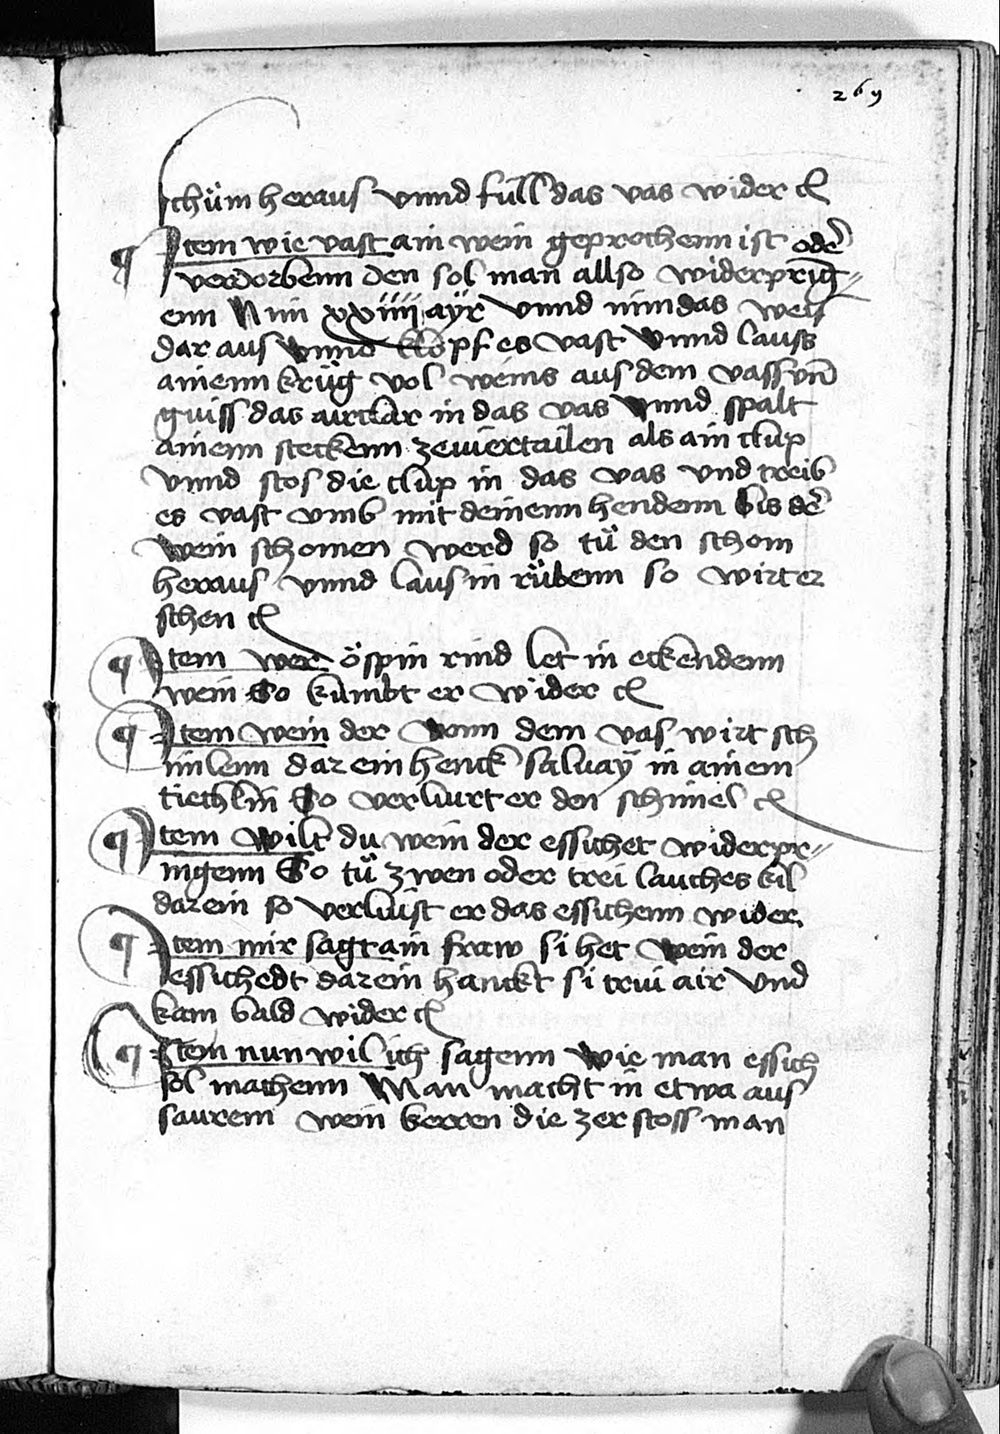 269
schüm heraus vnnd full das vas wider
Item wie vast ain wein geprochenn ist oder
verdorbenn den sol man allso widerpring=
enn Nim xxiiii ayr vnnd nim das weis
dar aus vnnd klopf es vast vnnd lauss
ainenn krüg vol weins aus dem vass vnd
guiss das airclar in das vas vnnd spalt
ainenn steckenn zeuiertailen als ain clup
vnnd stos die clup in das vas vnd treib
es vast vmb mit deinenn hendenn bis der
wein schomen werd so tů den schom
heraus vnnd laus in růbenn so wirt er
schen
Item wer öspin rind let in eckendenn
wein So kumbt er wider
Item wein der vonn dem vas wirt sch
imlenn dar ein henck saluay in ainem
tiechlin So verliurt er den schimel
Item wilt du wein der essichet widerpr=
ingenn So tů zwen oder trei lauches kil
darein so verluist er das essichenn wider
Item mir sagt ain fraw si het wein der
essichedt darein hanckt si triu air vnd
kam bald wider
Item nun wil ich sagenn wie man essich
sol machenn Man macht in etwa aus
saurem wein berren die zer stoss man